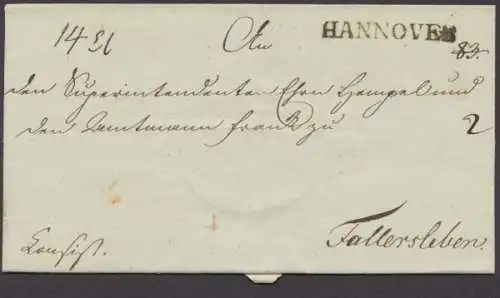 1431
An
HANNOVER
83.
den Superintendenten Ehrn Hempel und
den Amtmann Frank zu
2
Fallersleben.
Consist.